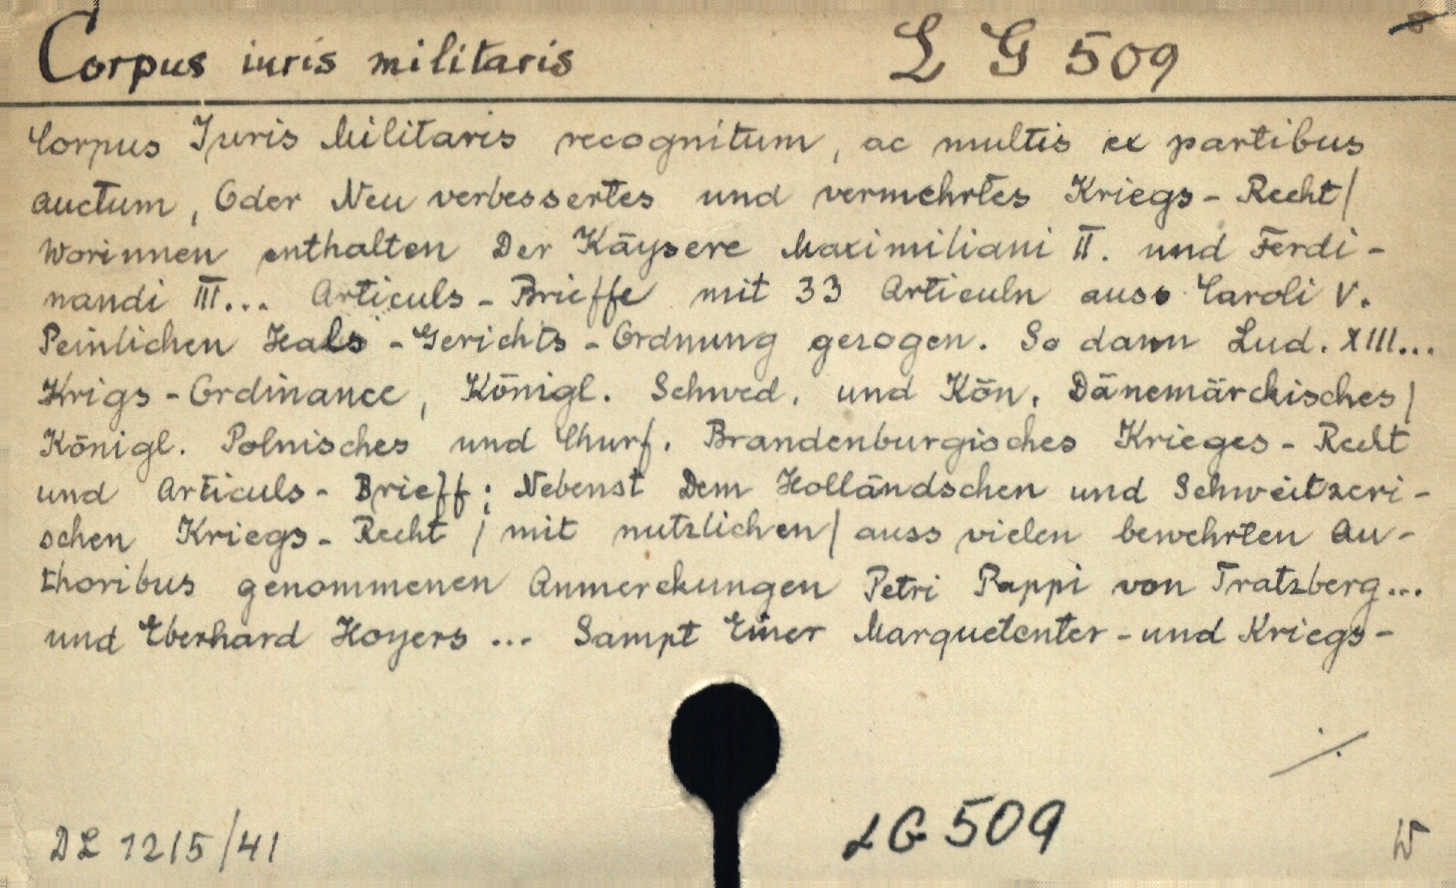 Corpus iuris militaris L G 509
Corpus Juris Militaris recognitum, ac multis ex partibus
auctum, Oder Neu verbessertes und vermehrtes Kriegs-Recht/
Worinnen enthalten Der Käysere Maximiliani II. und Ferdi-
nandi III... Articuls-Brieffe mit 33 Articuln auss Caroli V.
Peinlichen Hals-Gerichts-Ordnung gezogen. So dann Lud. XIII...
Krigs-Ordinance, Königl. Schwed. und Kön. Dänemärckisches/
Königl. Polnisches und Churf. Brandenburgisches Krieges-Recht
und Articuls-Brieff; Nebenst Dem Holländschen und Schweitzeri-
schen Kriegs-Recht / mit nutzlichen/ auss vielen bewehrten Au-
thoribus genommenen Anmerckungen Petri Pappi von Tratzberg...
und Eberhard Hoyers ... Sampt Einer Marquetenter-und Kriegs-
DL 1215/41 LG 509 W